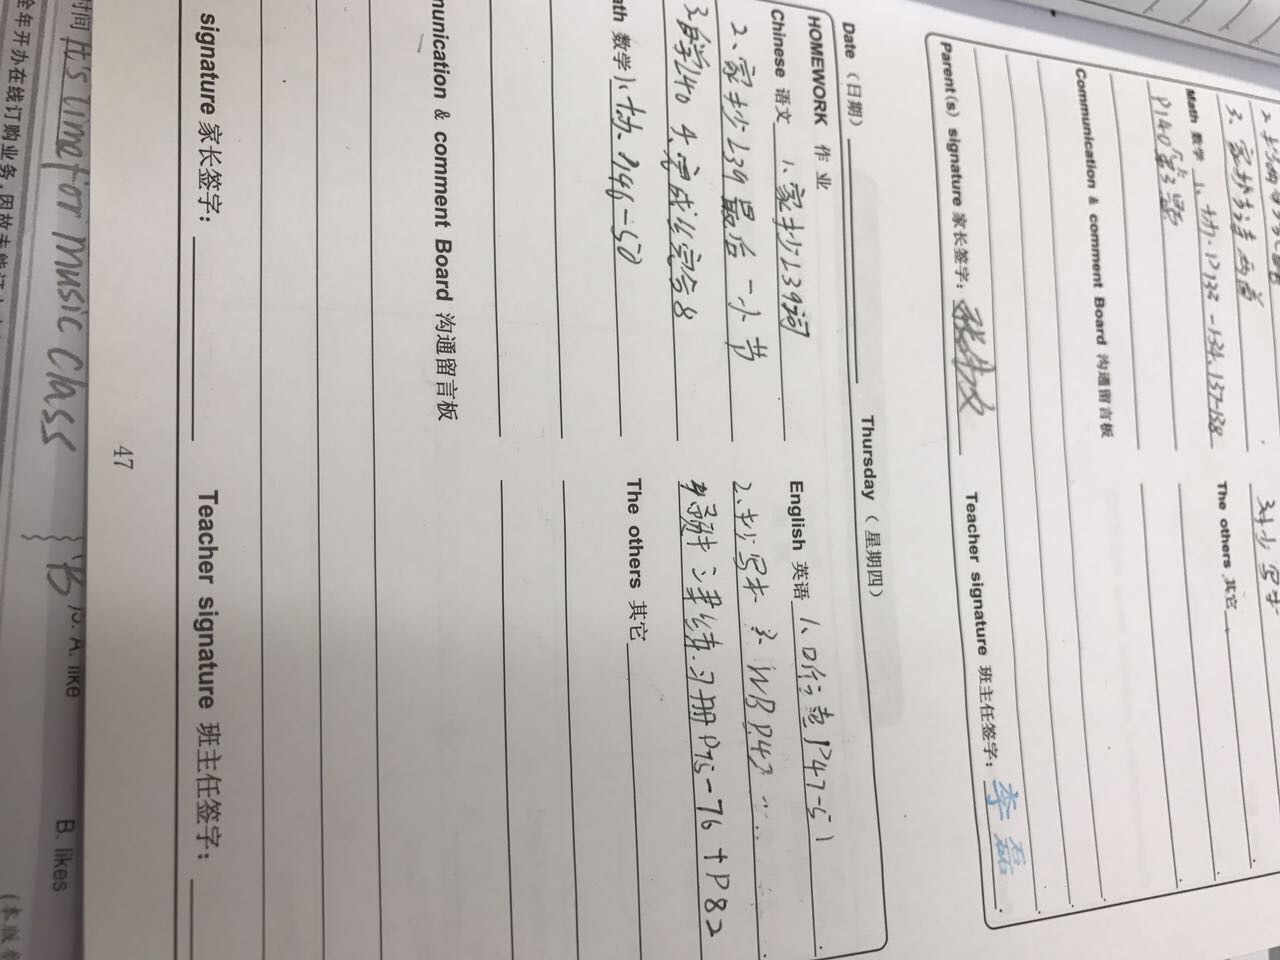 2、
3、家抄
Math 数学 1、七办.P132-134、137-138
P140第3题
The others 其它
Communication & comment Board 沟通留言板
Parent(s) signature 家长签字：
Teacher signature 班主任签字：李磊
Date（日期）
Thursday（星期四）
HOMEWORK 作业
Chinese 语文 1、家抄L39词
2、家抄L39最后一小节
3、自学L40 4、完成
English 英语 1、P47-51
2、抄写本 3、WB P47
练习册P75-76+P82
ath 数学 1、P146-150
The others 其它
munication & comment Board 沟通留言板
signature 家长签字：
Teacher signature 班主任签字：
47
时间 It's time for music class
B
A. like
B. likes
全年开办在线订购业务,因故未能
(本版